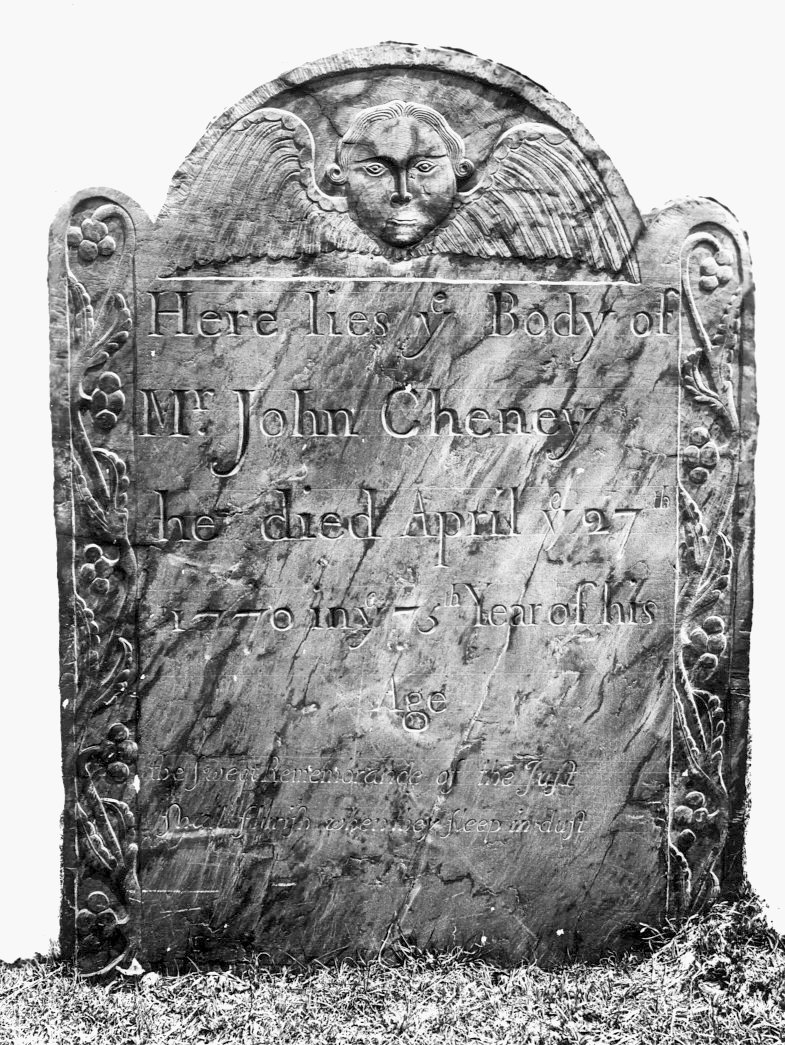 Here lies yᵉ Body of
Mʳ. John Cheney
he died April yᵉ 27ᵗʰ
1770 in yᵉ 75ᵗʰ Year of his
Age
the Sweet Rememorande of the Juſt
Shall flurish when they ſleep in duſt